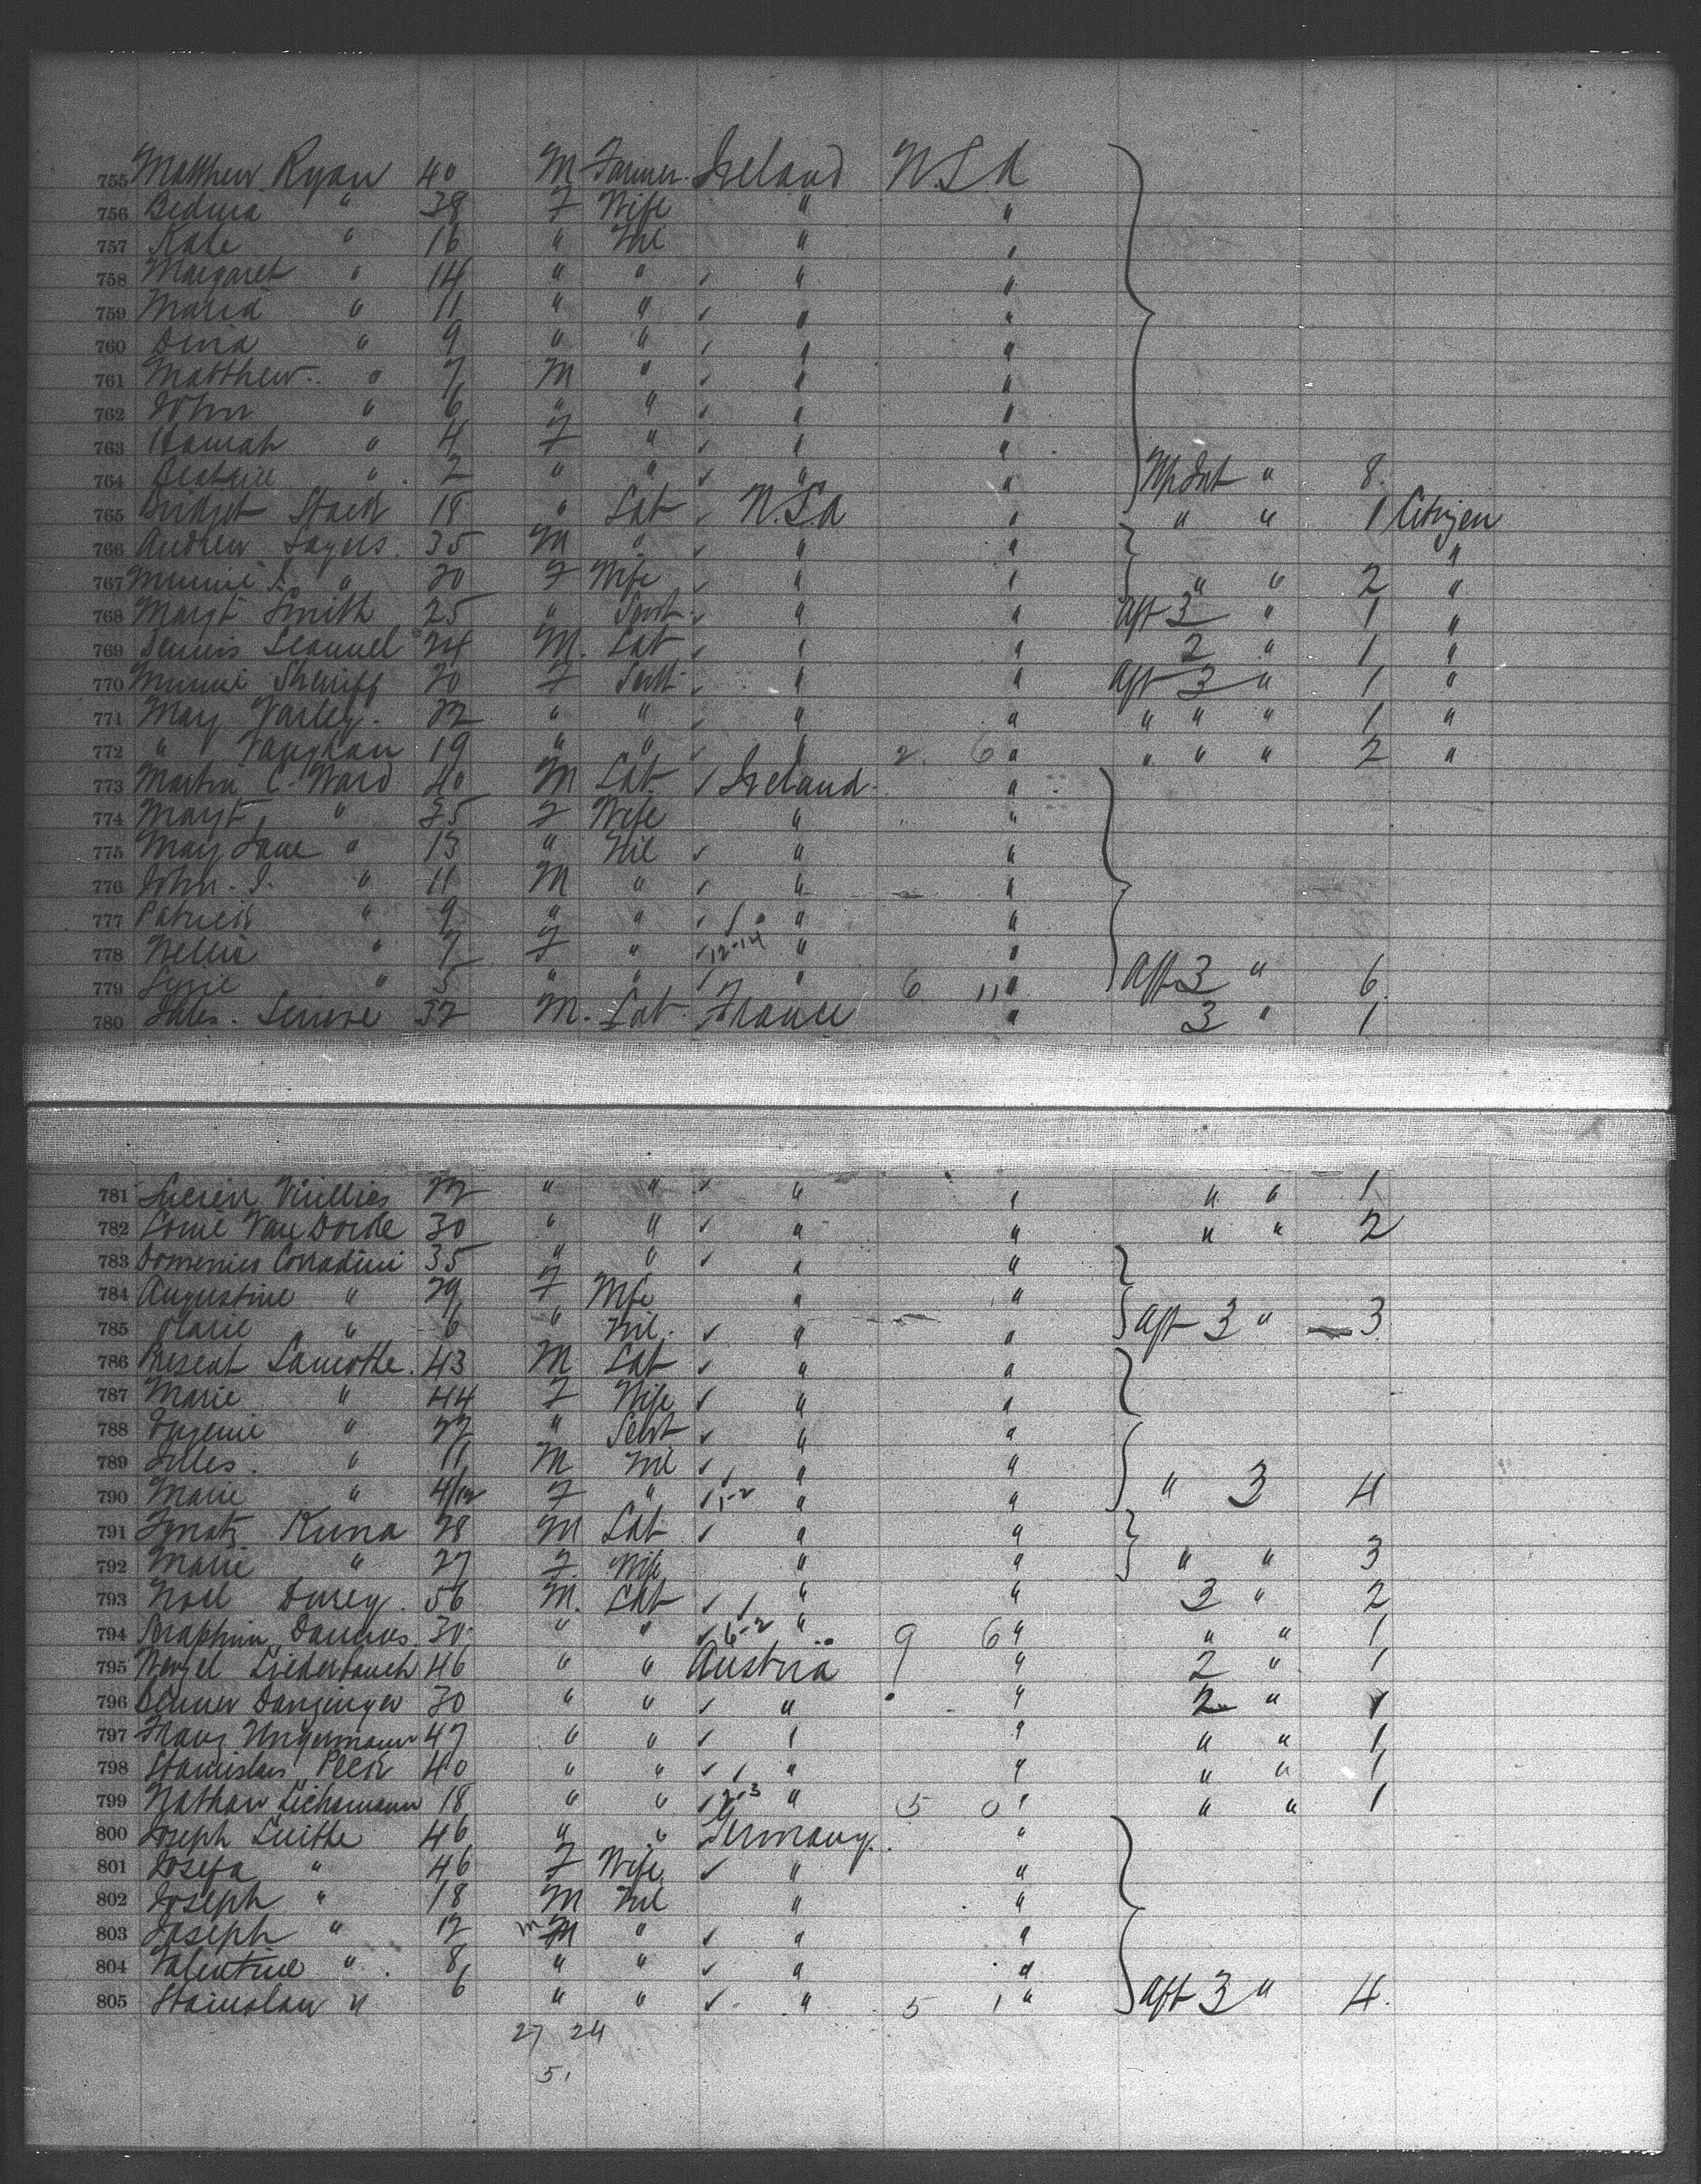 755 Matthew Ryan 40 M Farmer Ireland U.S.A
756 " 38 F Wife " "
757 Kate " 16 " Nil " "
758 Margaret " 14 " " " "
759 Maria " 11 " " " "
760 Dina " 9 " " " "
761 Matthew " 7 M " " "
762 John " 6 " " " "
763 Hannah " 4 F " " "
764 Beatrice " 2 " " " " " 8
765 Bridget Stack 18 " Lab U.S.A " " " 1 Citizen
766 Andrew Sayers 35 M " " " "
767 Minnie S. " 20 F Wife " " " " 2 "
768 Margt Smith 25 " Servt " " Aft 3 " 1 "
769 Dennis 24 M. Lab " " 2 " 1 "
770 Minnie Sheriff 20 F Servt " " Aft 3 " 1 "
771 May Varley 22 " " " " " " " 1 "
772 " Vaughan 19 " " " 2 6 " " " " 2 "
773 Martin C. Ward 40 M Lab Ireland "
774 Margt " 35 F Wife " "
775 Mary Jane " 13 " Nil " "
776 John. J. " 11 M " " "
777 Patrick " 9 " " " "
778 Nellie " 7 F " 12-14 " "
779 " 5 " " " 6 11 " Aft 3 " 6
780 Jules 32 M. Lab France " 3 " 1
781 Lucien 22 " " " " " " 1
782 Van 30 " " " " " " 2
783 Domenico Corradini 35 " " " "
784 Augustine " 29 F Wife " "
785 Marie " 6 " Nil " " Aft 3 " 3
786 Lamotte 43 M Lab " "
787 Marie " 44 F Wife " "
788 Eugenie " 22 " Servt " "
789 Jules " 11 M Nil " "
790 Marie " 4/12 F " 1-2 " " " 3 4
791 Ignatz Kuna 28 M Lab " "
792 Marie " 27 F Wife " " " " 3
793 Noel Durey 56 M. Lab " " 3 " 2
794 Seraphin 30 " " 6-2 " 9 6 " " " 1
795 Wenzel Liederbauch 46 " " Austria " 2 " 1
796 Danzinger 30 " " " " 2 " 1
797 Franz Ungermann 47 " " " " " " 1
798 Stanislaus 40 " " " " " " 1
799 Nathan 18 " " 2-3 " 5 0 " " " 1
800 Joseph 46 " " Germany "
801 Josefa " 46 F Wife " "
802 Joseph " 18 M Nil " "
803 Joseph " 12 m M " " "
804 Valentine " 8 " " " "
805 Stanislau " 6 " " " 5 1 " Aft 3 " 4
27 24
51